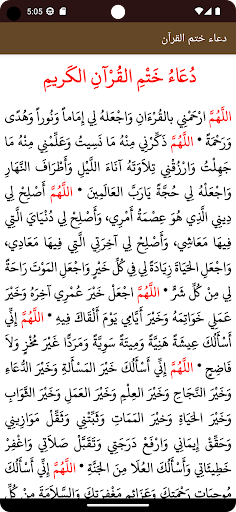 5:05
دعاء ختم القرآن
دُعَاءُ خَتْمِ القُرْآنِ الكَرِيمِ
اللَّهُمَّ ارْحَمْنِي بالقُرْءَانِ وَاجْعَلهُ لِي إِمَاماً وَنُوراً وَهُدًى
وَرَحْمَةً * اللَّهُمَّ ذَكِّرْنِي مِنْهُ مَا نَسِيتُ وَعَلِّمْنِي مِنْهُ مَا
جَهِلْتُ وَارْزُقْنِي تِلاَوَتَهُ آنَاءَ اللَّيْلِ وَأَطْرَافَ النَّهَارِ
وَاجْعَلْهُ لِي حُجَّةً يَارَبَّ العَالَمِينَ * اللَّهُمَّ أَصْلِحْ لِي
دِينِي الَّذِي هُوَ عِصْمَةُ أَمْرِي، وَأَصْلِحْ لِي دُنْيَايَ الَّتِي
فِيهَا مَعَاشِي، وَأَصْلِحْ لِي آخِرَتِي الَّتِي فِيهَا مَعَادِي،
وَاجْعَلِ الحَيَاةَ زِيَادَةً لِي فِي كُلِّ خَيْرٍ وَاجْعَلِ المَوْتَ رَاحَةً
لِي مِنْ كُلِّ شَرٍّ * اللَّهُمَّ اجْعَلْ خَيْرَ عُمْرِي آخِرَهُ وَخَيْرَ
عَمَلِي خَوَاتِمَهُ وَخَيْرَ أَيَّامِي يَوْمَ أَلْقَاكَ فِيهِ * اللَّهُمَّ إِنِّي
أَسْأَلُكَ عِيشَةً هَنِيَّةً وَمِيتَةً سَوِيَّةً وَمَرَدًّا غَيْرَ مُخْزٍ وَلاَ
فَاضِحٍ * اللَّهُمَّ إِنِّي أَسْأَلُكَ خَيْرَ المَسْأَلةِ وَخَيْرَ الدُّعَاءِ
وَخَيْرَ النَّجَاحِ وَخَيْرَ العِلْمِ وَخَيْرَ العَمَلِ وَخَيْرَ الثَّوَابِ
وَخَيْرَ الحَيَاةِ وَخيْرَ المَمَاتِ وَثَبِّتْنِي وَثَقِّلْ مَوَازِينِي
وَحَقِّقْ إِيمَانِي وَارْفَعْ دَرَجَتِي وَتَقَبَّلْ صَلاَتِي وَاغْفِرْ
خَطِيئَاتِي وَأَسْأَلُكَ العُلَا مِنَ الجَنَّةِ * اللَّهُمَّ إِنِّي أَسْأَلُكَ
مُوجِبَاتِ رَحْمَتِكَ وَعَزَائِمَ مَغْفِرَتِكَ وَالسَّلاَمَةَ مِنْ كُلِّ